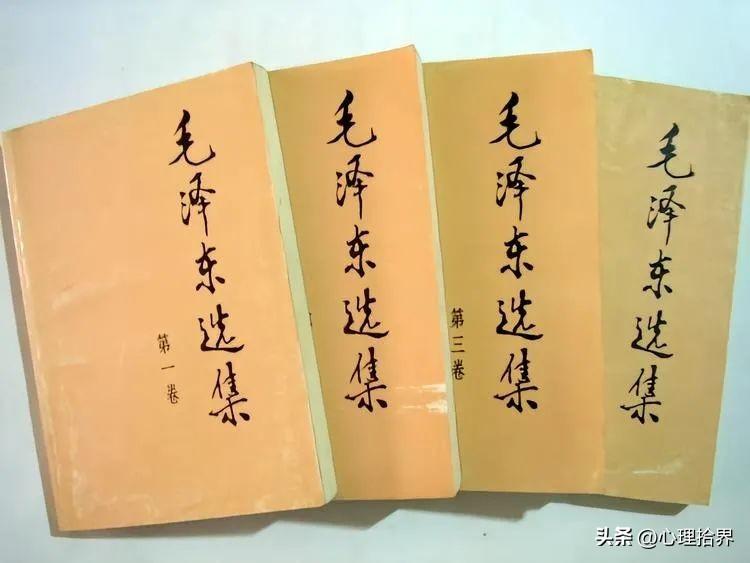 毛泽东选集
第一卷
毛泽东选集
毛泽东选集
第三卷
毛泽东选集
头条 @心理拾界